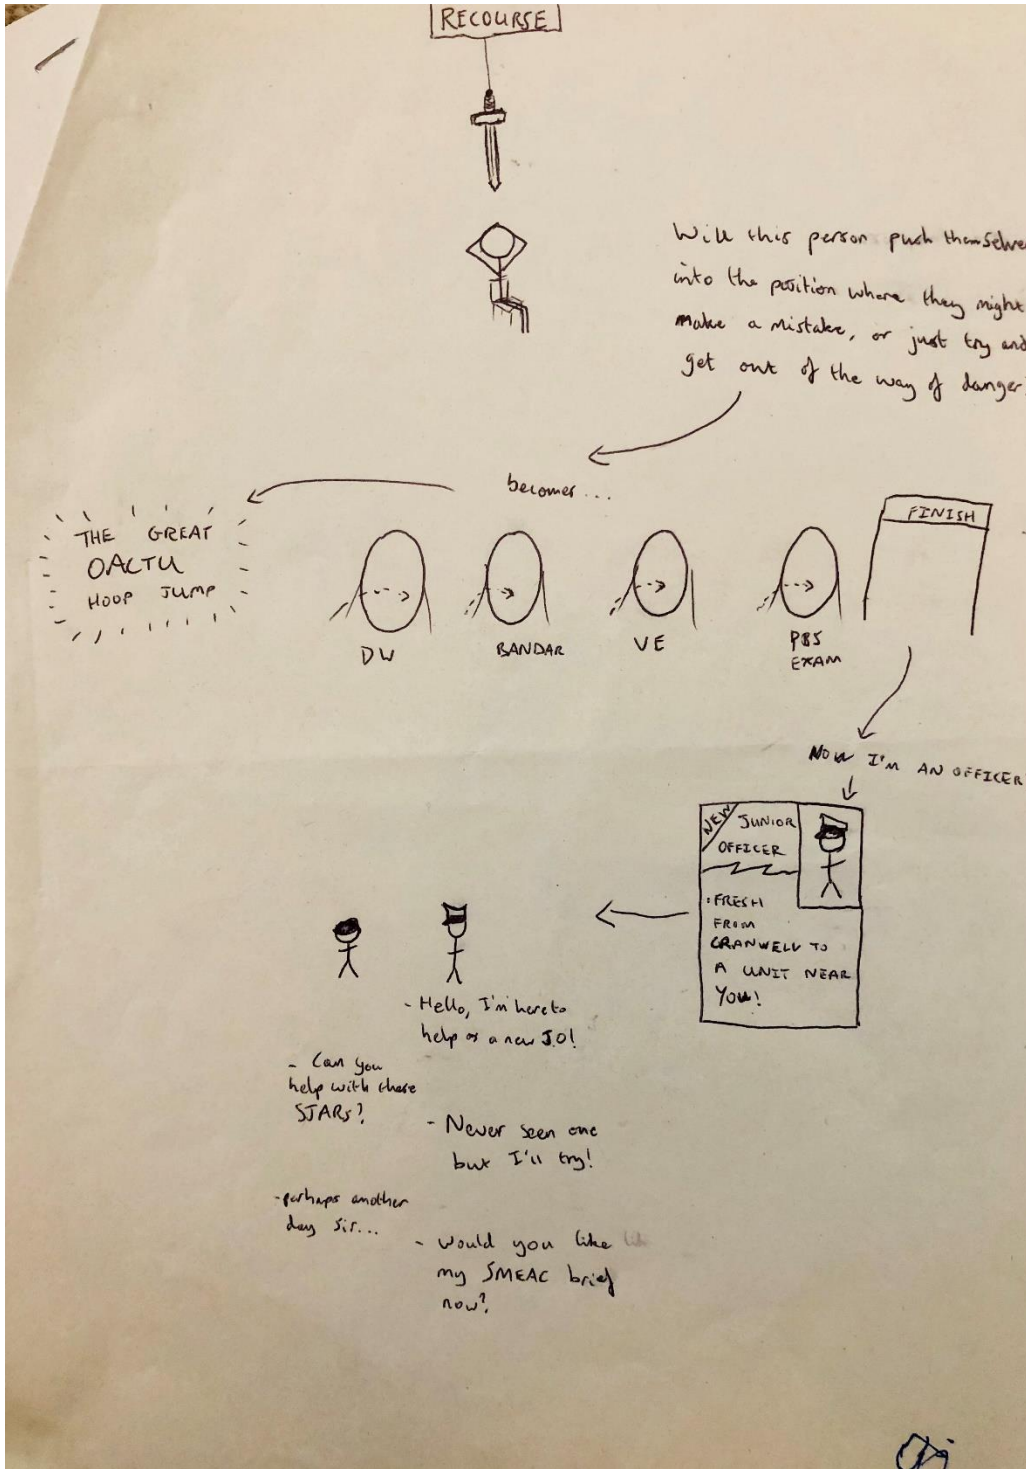 RECOURSE
Will this person push themselve
into the position where they might
make a mistake, or just try and
get out of the way of danger?
becomes...
THE GREAT
OACTU
HOOP JUMP
FINISH
DW
BANDAR
VE
PBS
EXAM
NOW I'M AN OFFICER
NEW
JUNIOR
OFFICER
• FRESH
FROM
CRANWELL TO
A UNIT NEAR
YOU!
- Hello, I'm here to
help as a new J.O!
- Can you
help with these
SJARs?
- Never seen one
but I'll try!
- perhaps another
day sir...
- would you like
my SMEAC brief
now?